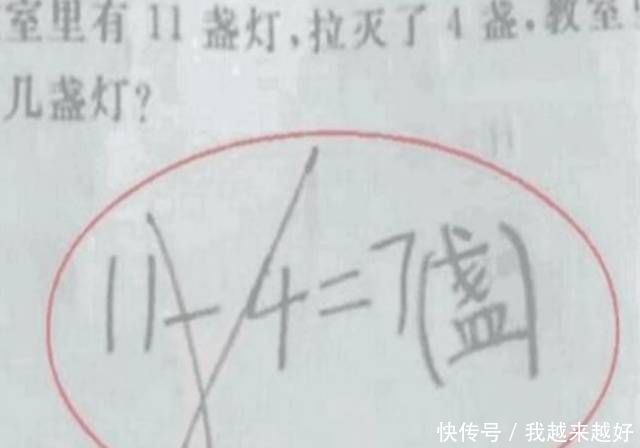 室里有 11 盏灯,拉灭了 4 盏,教室
几盏灯?
11-4=7(盏)
快传号 / 我越来越好